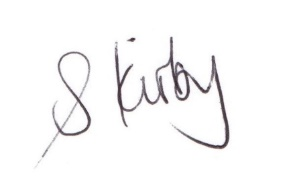 S Kirby